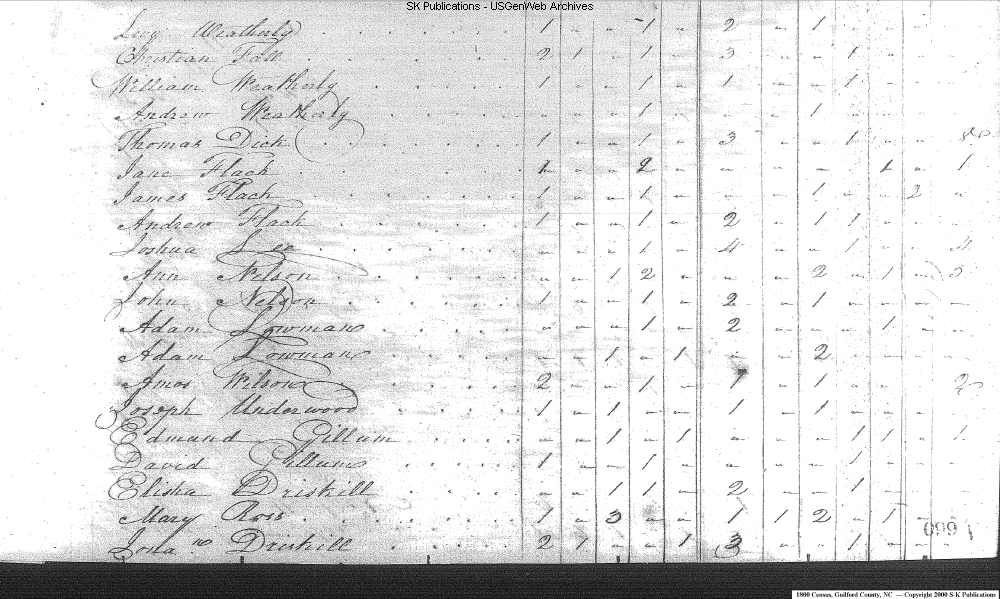 SK Publications - USGenWeb Archives
Levy Weatherly 1 - - 1 - 2 - - 1 - -
Christian Fall 2 1 - 1 - 3 - - - 1 -
William Weatherly 1 - - 1 - 1 - - - 1 -
Andrew Weatherly - - - 1 - - - - 1 - -
Thomas Dick 1 - - 1 - 3 - - - 1 -
Jane Flack 1 - - 2 - - - - - - 1 - 1
James Flack 1 - - 1 - - - - 1 - - 2
Andrew Flack 1 - - 1 - 2 - - 1 1 -
Joshua Lee - - - 1 - 4 - - - 1 - - 4
Ann Nelson - - 1 2 - - - - 2 - 1 - 5
John Nelson 1 - - 1 - 2 - - 1 - - - -
Adam Lowman - - - 1 - 2 - - - - 1 -
Adam Lowman - - 1 - 1 - - - 2 - - -
Amos Wilson 2 - - 1 - 1 - - 1 - - - 2
Joseph Underwood 1 - 1 - - 1 - - 1 - - -
Edmund Gillum - - 1 - 1 - - - - 1 1 - 1
David Gillum 1 - - 1 - - - - - 1 - -
Elisha Driskill - - 1 1 - 2 - - - 1 - -
Mary Ross 1 - 3 - - 1 1 2 - 1 -
Jona Driskill 2 1 - - 1 3 - - - 1 - -
660
1800 Census, Guilford County, NC — Copyright 2000 S-K Publications